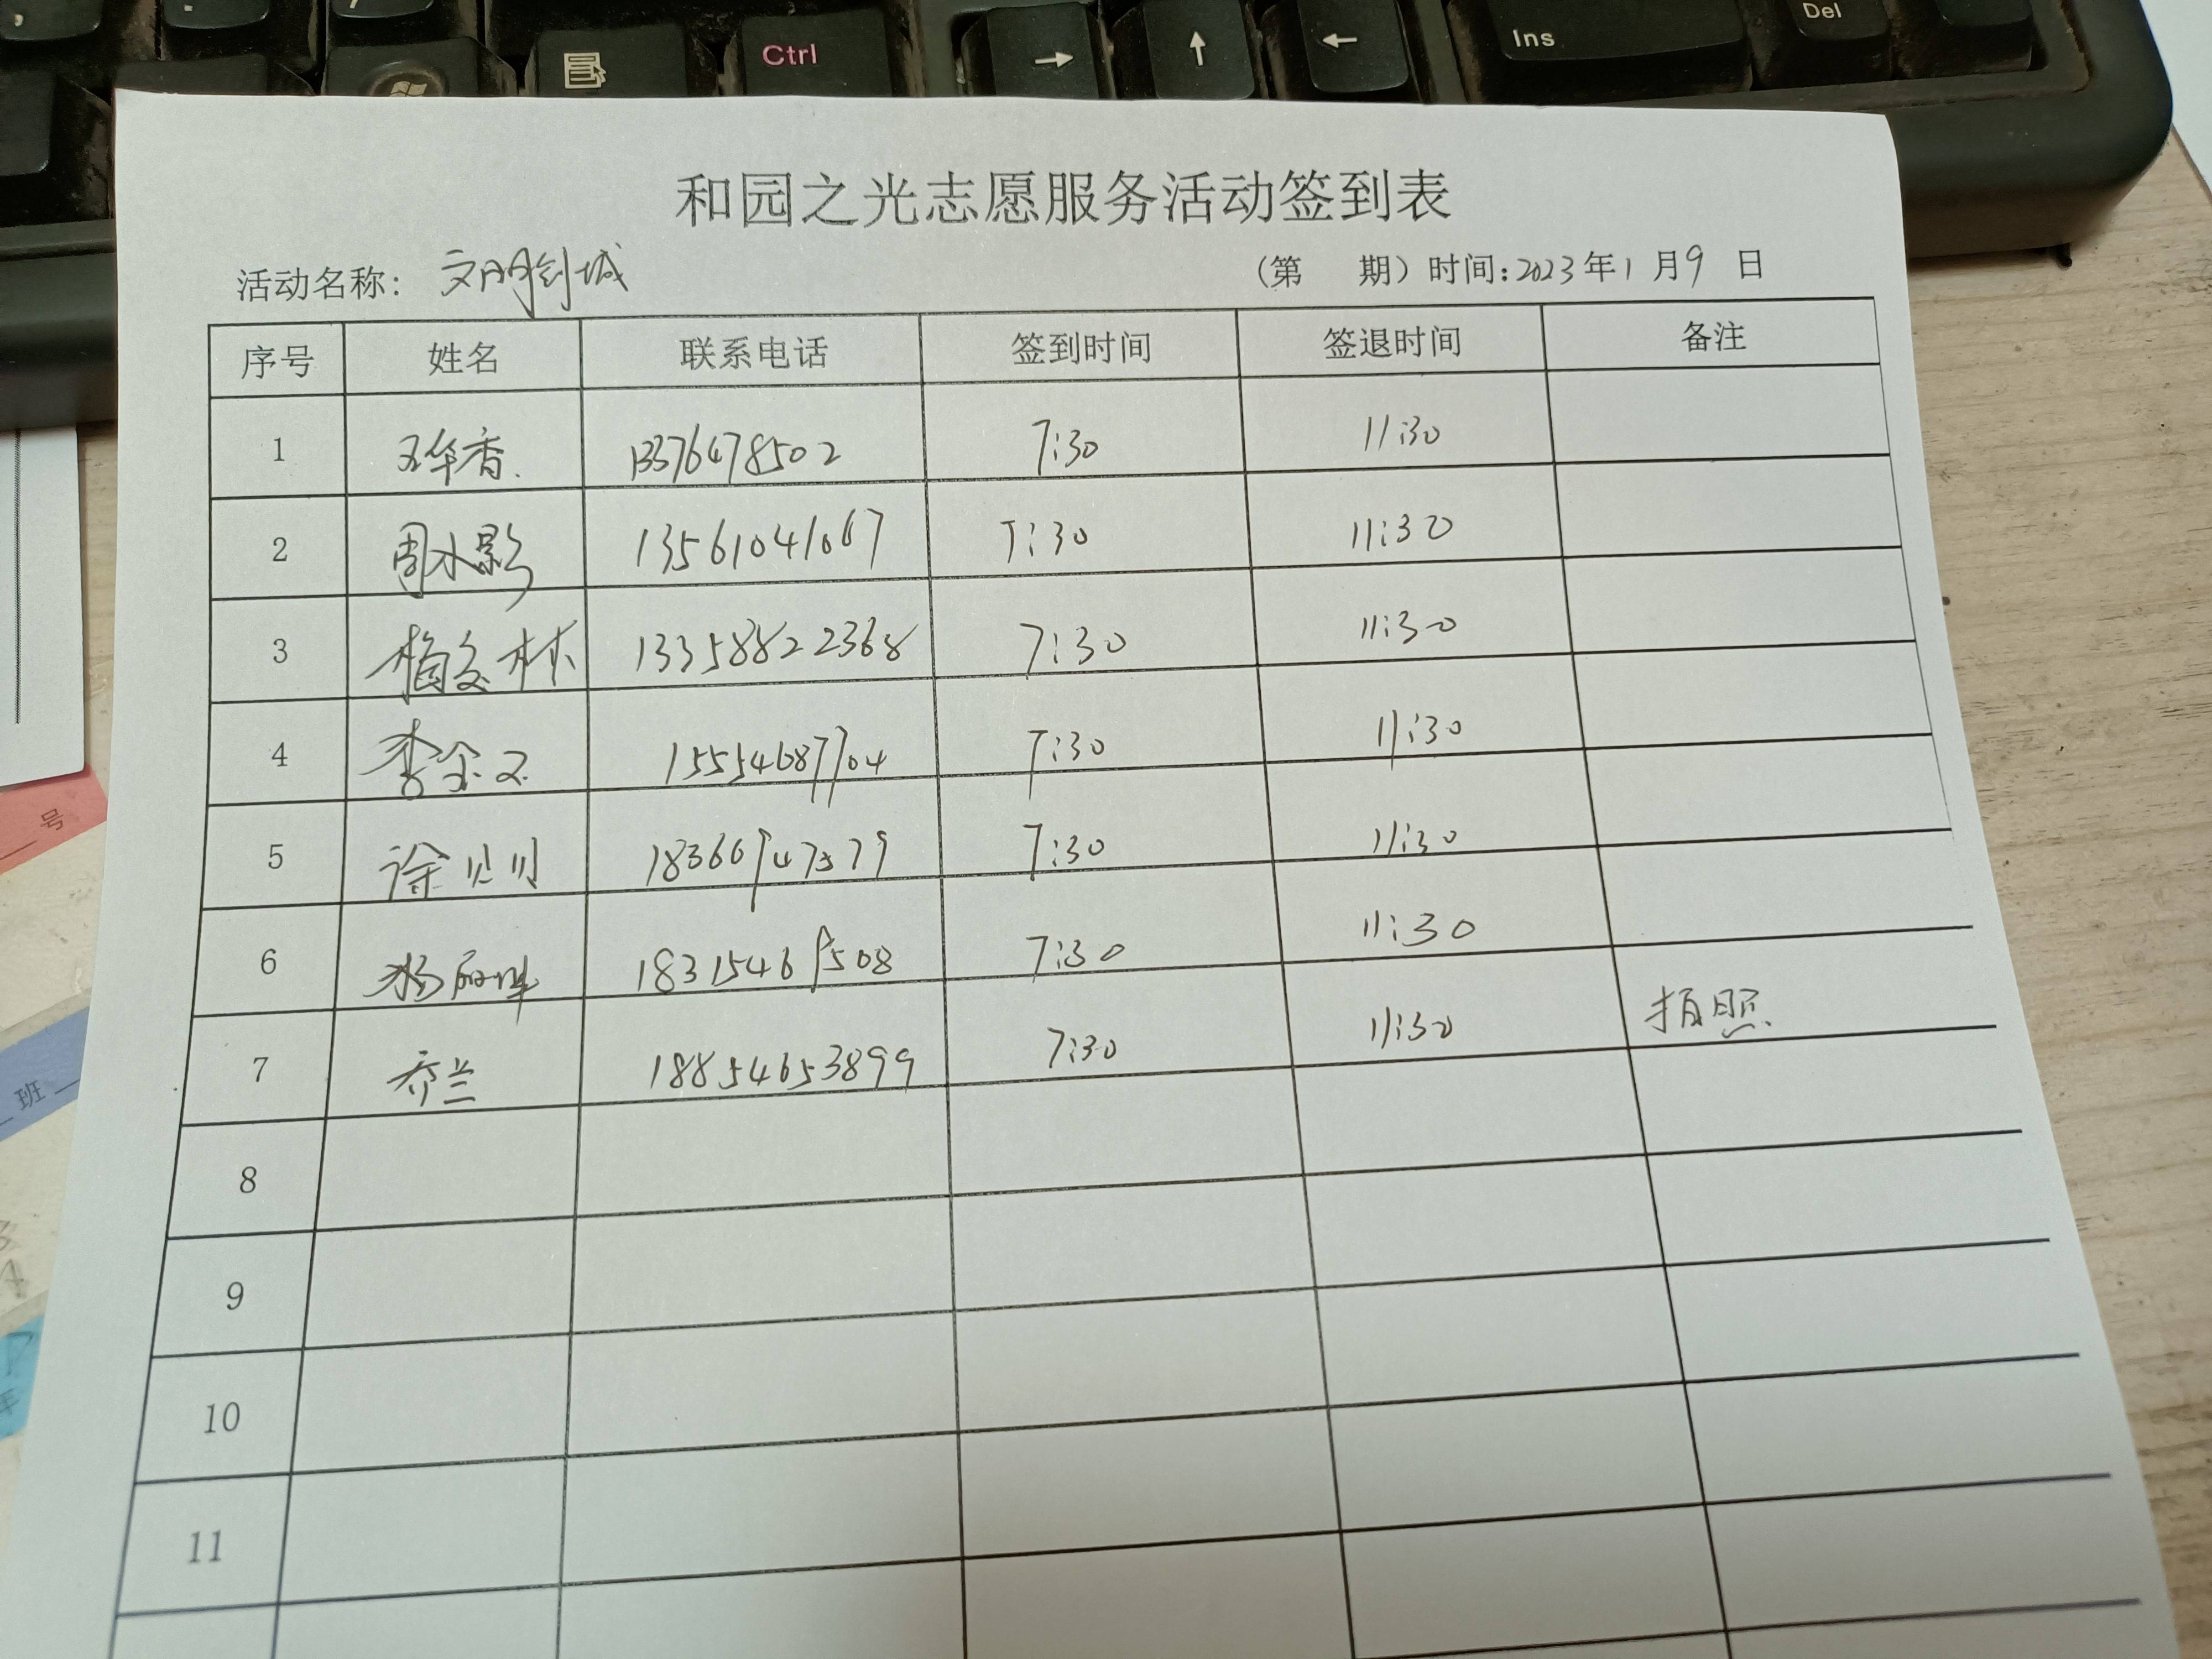 Ctrl
Ins
Del
和园之光志愿服务活动签到表
活动名称: 文明创城 (第 期) 时间:2023年1月9日
序号 姓名 联系电话 签到时间 签退时间 备注
1 华香 13376478502 7:30 11:30
2 周水影 13561041067 7:30 11:30
3 林 13358822368 7:30 11:30
4 李金 15554687704 7:30 11:30
5 徐贝贝 7:30 11:30
6 杨 7:30 11:30
7 乔兰 18854653899 7:30 11:30 拍照
8
9
10
11
号
班